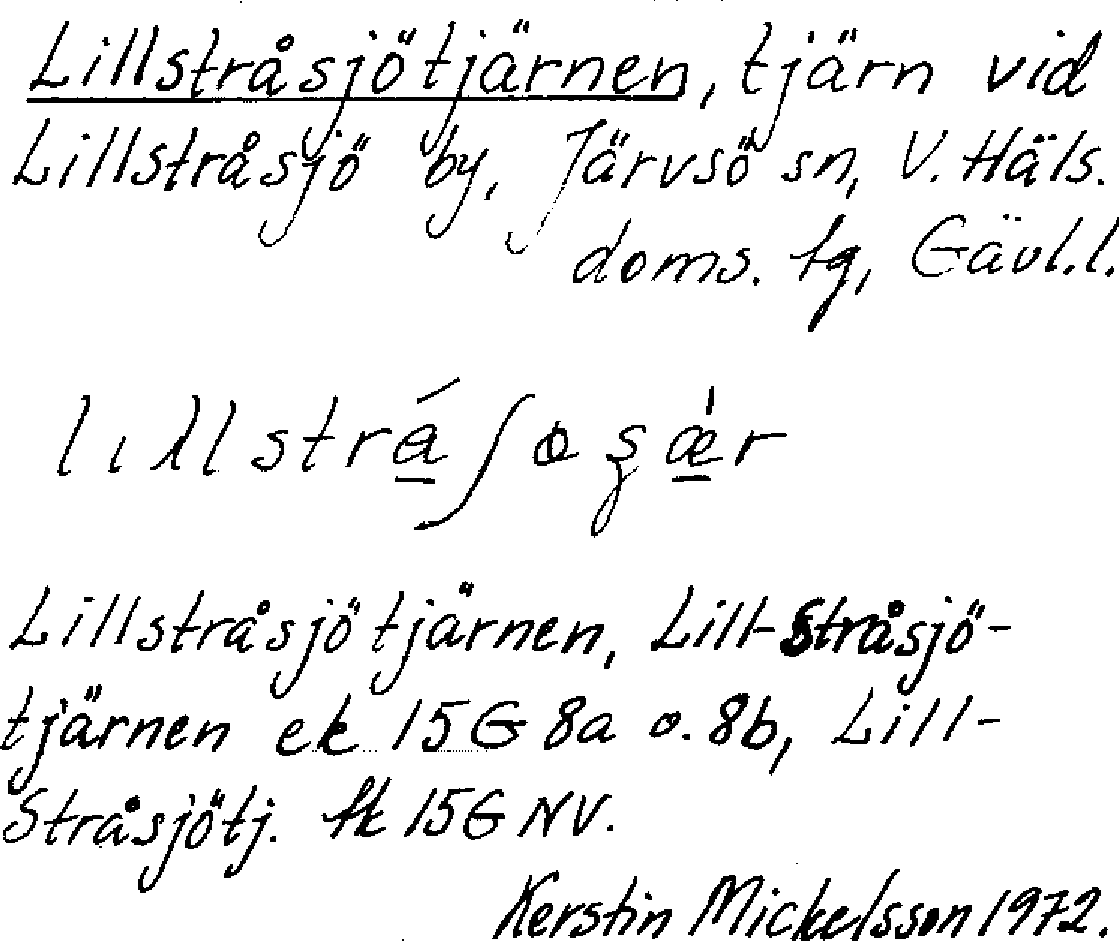 Lillstråsjötjärnen, tjärn vid
Lillstråsjö by, Järvsö sn, V. Häls.
doms. tg, Gävl.l.
Lillstråsjötjärnen, Lill-Stråsjö-
tjärnen ek 15G 8a o. 8b, Lill-
Stråsjötj. tk 15G NV.
Kerstin Mickelsson 1972.